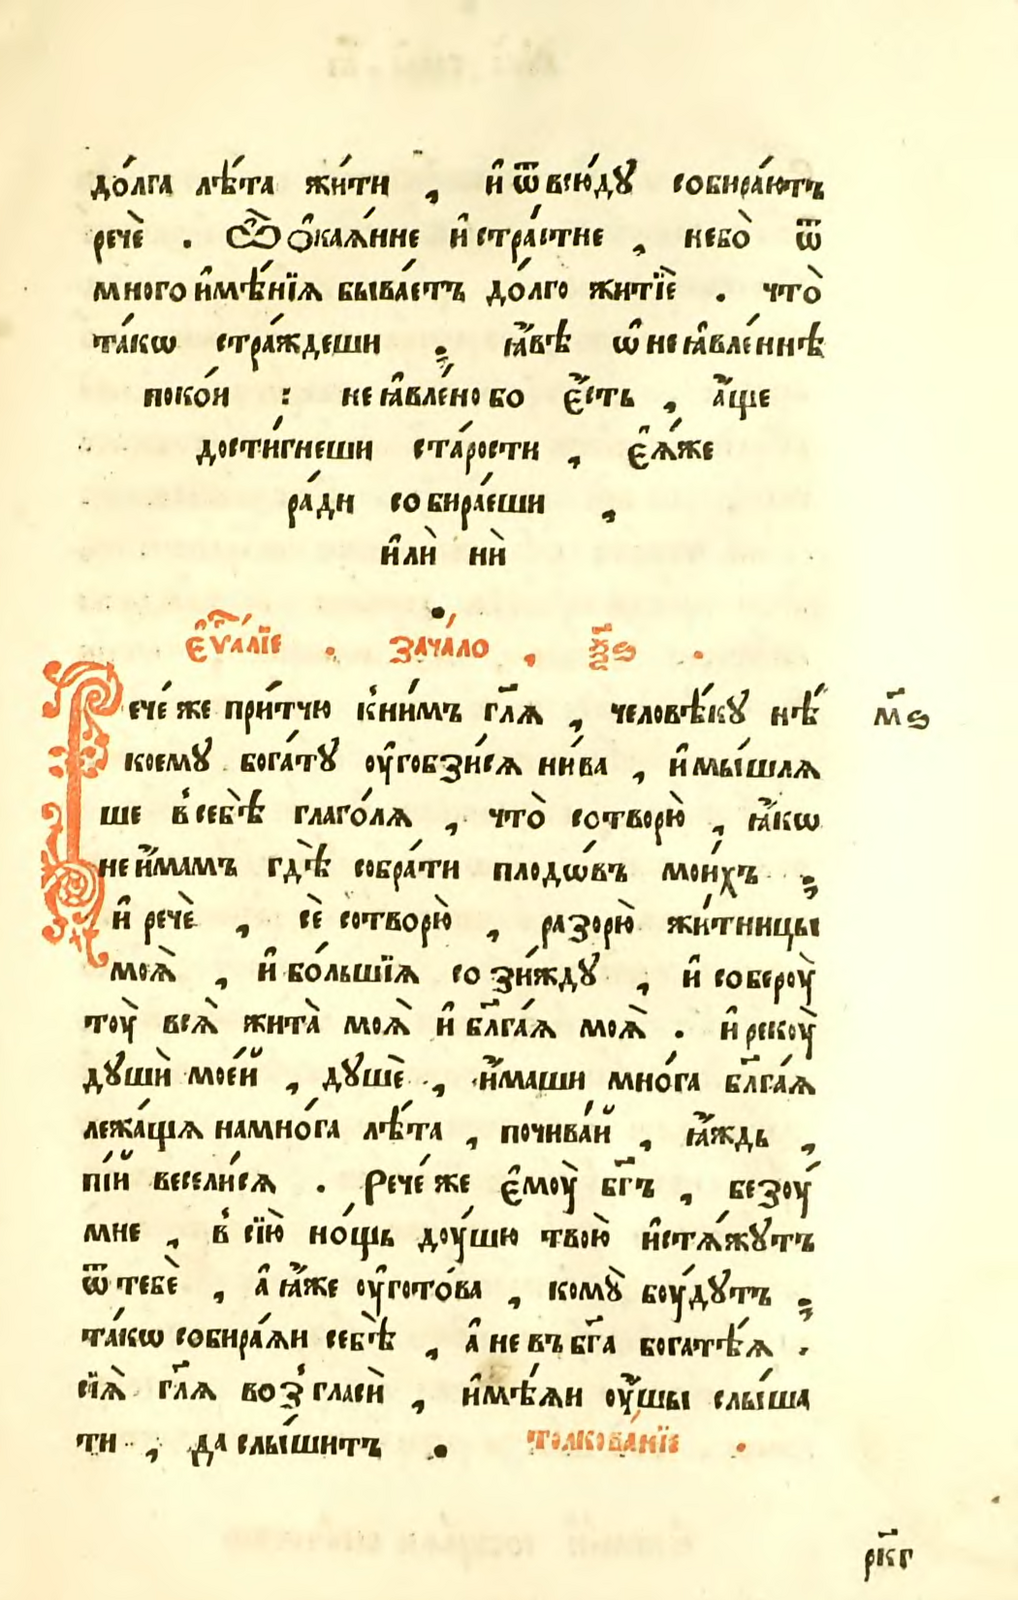 до́лга лѣ́та жи́ти , и҆ ѿ всю́дꙋ собира́ютъ
речѐ . Ѽ ѻ҆кая́нне и҆ стра́стне , небо̀ ѿ
много и҆мѣ́нїѧ быва́етъ до́лго житїѐ . что̀
та́кѡ стра́ждеши ; ꙗ҆́вѣ ѡ҆ неꙗ҆вле́ннѣ
поко́и : не ꙗ҆вле́но бо є҆́сть , а҆́ще
дости́гнеши ста́рости , є҆ѧ́же
ра́ди собира́еши ,
и҆лѝ нѝ
.
є҆ѵⷢ҇алїе . зача́ло , ѯ҃ѕ .
Рече́ же при́тчю к҆ни́мъ гл҃ѧ , человѣ́кꙋ нѣ́ м҃ѕ
коемꙋ бога́тꙋ оу҆гобзи́сѧ ни́ва , и҆ мы́шлѧ
ше в҆ себѣ̀ глаго́лѧ , что̀ сотворю̀ , ꙗ҆́кѡ
не и҆́мамъ гдѣ̀ собра́ти плодѡ́въ мои́хъ ;
и҆ речѐ , сѐ сотворю̀ , разорю̀ жи́тницы
моѧ̀ , и҆ бо́льшїѧ сози́ждꙋ , и҆ собероу̀
тоу̀ всѧ̀ жита̀ моѧ̀ и҆ бл҃га́ѧ моѧ̀ . и҆ рекоу̀
дꙋшѝ мое́й , дꙋшѐ , и҆́маши мно́га бл҃га́ѧ
лежа́щѧ на мно́га лѣ́та , почива́й , ꙗ҆́ждь ,
пі́й весели́сѧ . Рече́ же є҆моу̀ бг҃ъ , безоу́
мне , в҆ сїю̀ но́щь доу́шю твою̀ и҆стѧ́жꙋтъ
ѿ тебѐ , а҆ ꙗ҆́же оу҆гото́ва , комꙋ̀ боу́дꙋтъ ;
та́кѡ собира́ѧи себѣ̀ , а҆ не въ бг҃а богатѣ́ѧ .
сїѧ̀ гл҃ѧ возгласѝ , и҆мѣ́ѧи оу҆́шы слы́ша
ти , да слы́шитъ . толкова́нїе .
рк҃г